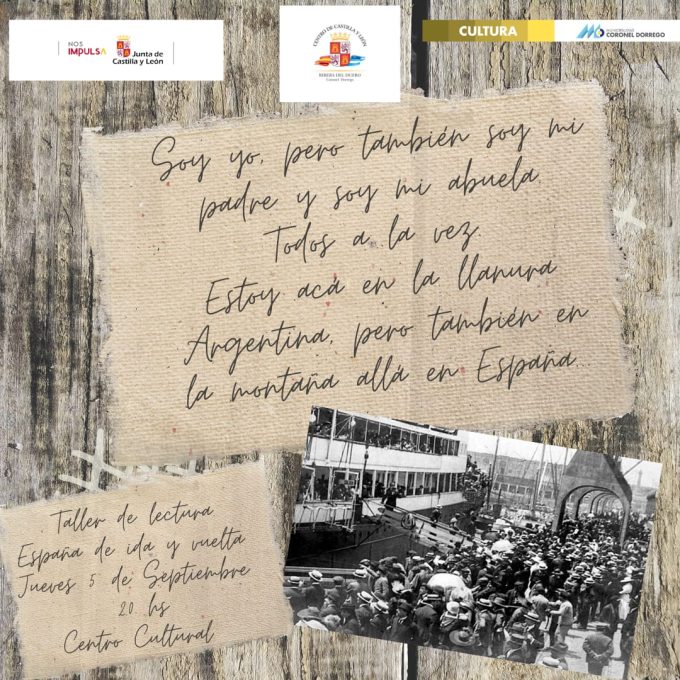 NOS
IMPULSA
Junta de
Castilla y León
CENTRO DE CASTILLA Y LEÓN
RIBERA DEL DUERO
Coronel Dorrego
CULTURA
MUNICIPALIDAD
CORONEL DORREGO
Soy yo, pero también soy mi
padre y soy mi abuela.
Todos a la vez.
Estoy acá en la llanura
Argentina, pero también en
la montaña allá en España...
Taller de lectura
España de ida y vuelta
Jueves 5 de Septiembre
20 hs
Centro Cultural